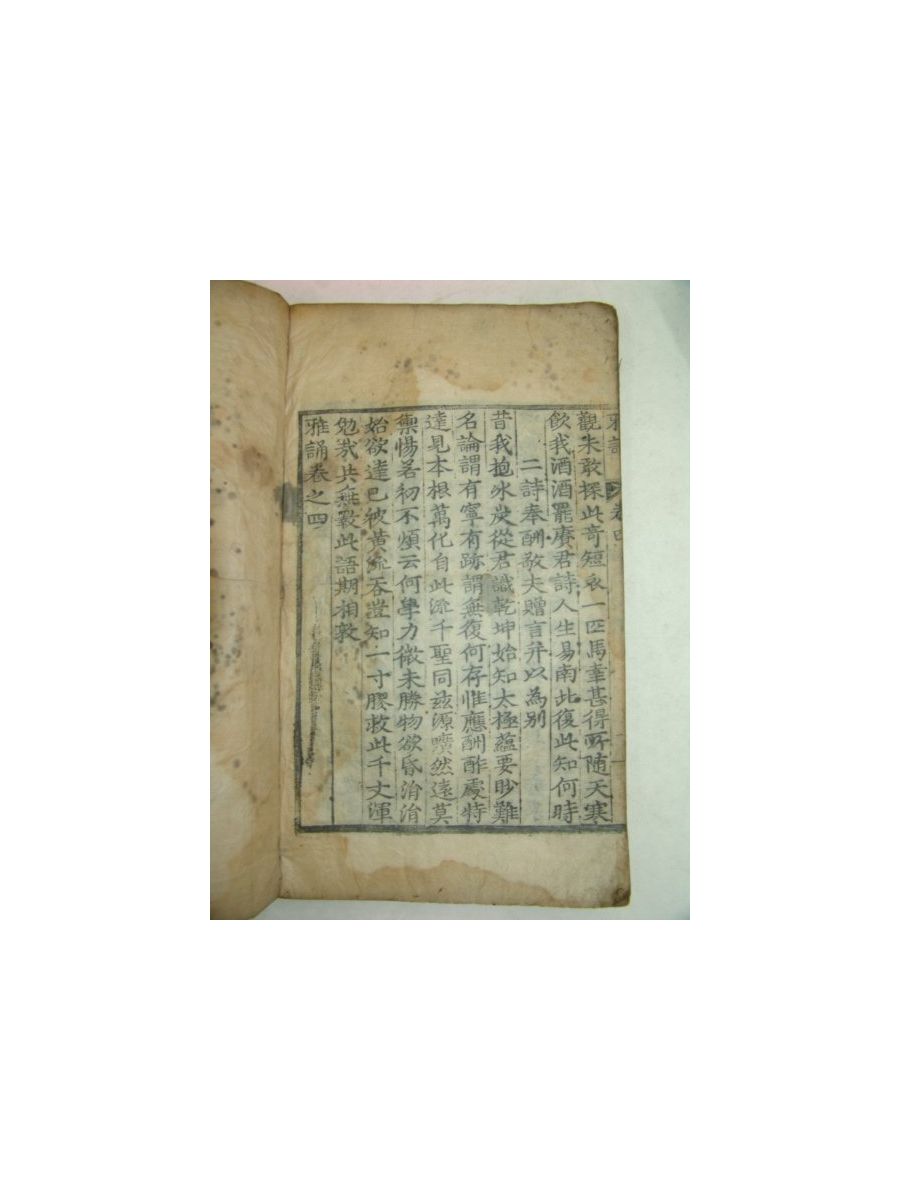 雅誦 卷四
觀未敢探此奇短衣一匹馬幸甚得所隨天寒
飲我酒酒罷賡君詩人生易南北復此知何時
二詩奉酬敬夫贈言幷以為別
昔我抱氷炭從君識乾坤始知太極蘊要眇難
名論謂有寧有跡謂無復何存惟應酬酢處特
達見本根萬化自此流千聖同茲源曠然遠莫
禦惕若初不煩云何學力微未勝物欲昏涓涓
始欲達已被黃流吞豈知一寸膠救此千丈渾
勉哉共無斁此語期相敦
雅誦卷之四